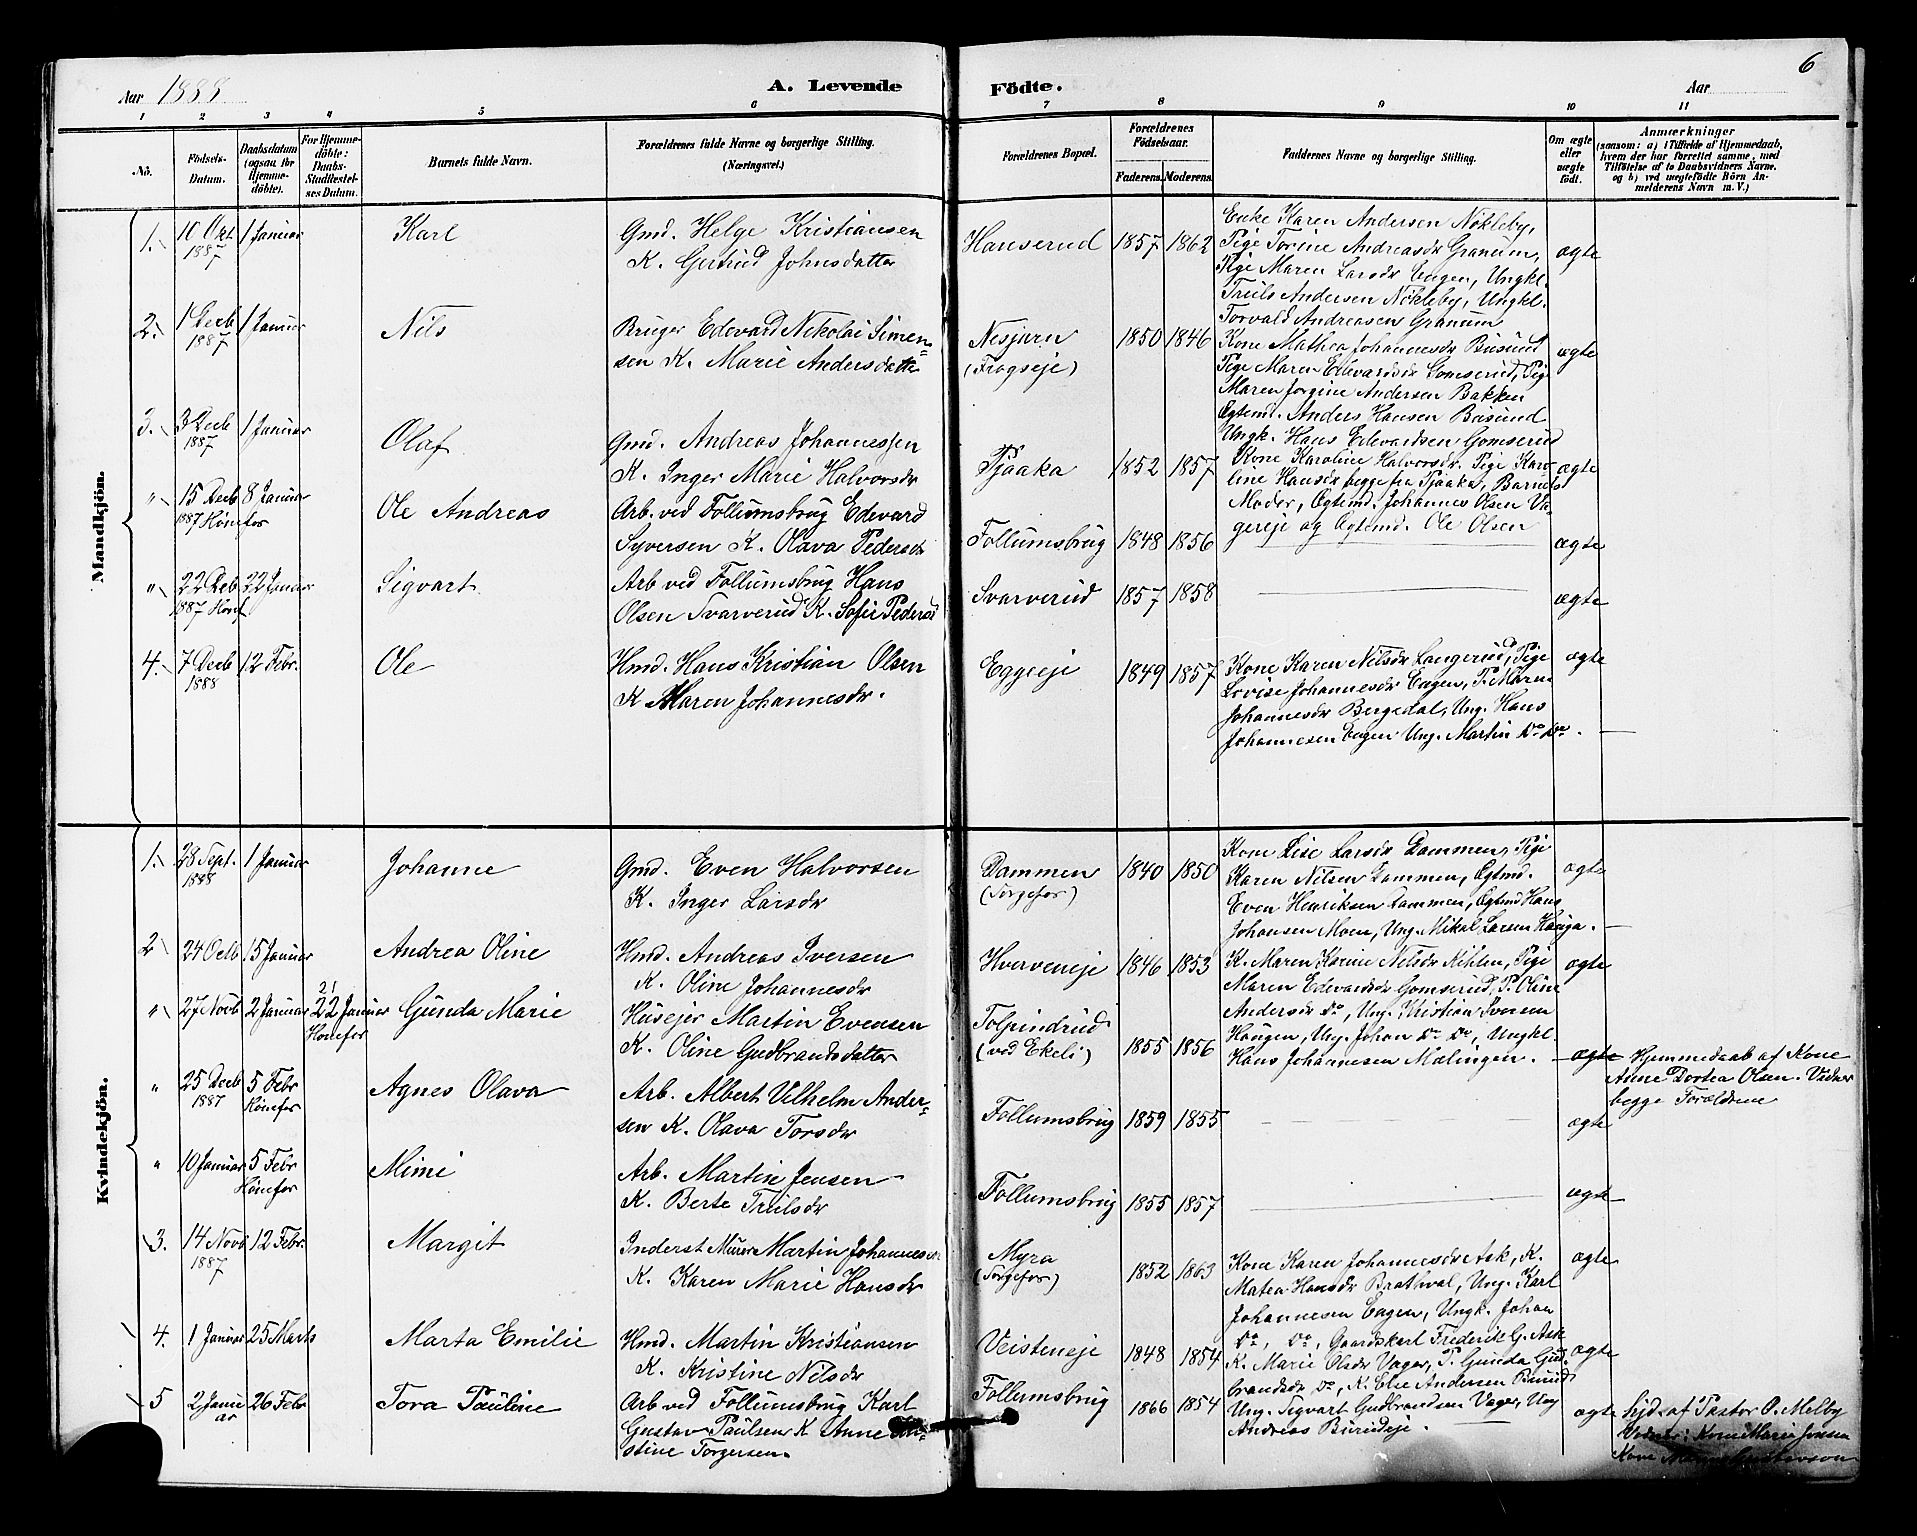 6
Aar 1888
A. Levende Födte.
Aar
1 2 3 4 5 6 7 8 9 10 11
No.
Födsels-Datum.
Daabsdatum (ogsaa for Hjemmedöbte).
For Hjemmedöbte: Daabs-Stadfæstelses Datum.
Barnets fulde Navn.
Forældrenes fulde Navne og borgerlige Stilling. (Næringsvei.)
Forældrenes Bopæl.
Forældrenes Födselsaar.
Faderens. Moderens.
Faddernes Navne og borgerlige Stilling.
Om ægte eller uægte født.
Anmærkninger
(saasom: a) i Tilfælde af Hjemmedaab,
hvem der har forrettet samme, med
Tilföielse af to Daabsvidners Navne,
og b) ved uægtefödte Börn An-
melderens Navn m. V.)
Mandkjön.
1. 10 Okt 1887 1 Januar Karl
Gmd. Helge Kristiansen
K. Gertrud Johnsdatter
Hanserud 1857 1862
Enke Karen Andersen Nökleby,
Pige Torine Andreasdr Granum,
Pige Maren Larsdr Engen, Ungkl.
Truls Andersen Nökleby, Ungkl.
Torvald Andreasen Granum
ægte
2. 1 Decb 1887 1 Januar Nils
Bruger Edevard Nikolai Simen-
sen K. Marie Andersdatter
Nesjarn
(Fragseje)
1850 1846
Kone Mathea Johannesdr Busund
Pige Maren Edevardsdr Gomserud, Pige
Maren Jorgine Andersen Bakken
Ogtemd. Anders Hansen Busund
Ungk. Hans Edevardsen Gomserud
ægte
3. 3 Decb 1887 1 Januar Olaf
Gmd. Andreas Johannessen
K. Inger Marie Halvorsdr
Tjaaka 1852 1857
Kone Karoline Halvorsdr. Pige Karo-
line Hansdr begge fra Tjaaka, Barnets
Moder, Ogtemd. Johannes Olsen Va-
gereje og Ogtemd. Ole Olsen
ægte
" 15 Decb 1887 8 Januar Hønefos Ole Andreas
Arb. ved Follumsbrug Edevard
Syversen K. Olava Pedersdr
Follumsbrug 1848 1856 ægte
" 22 Decb 1887 22 Januar Hønf Sigvart
Arb ved Follumsbrug Hans
Olsen Svarverud K. Sofie Pedersd
Svarverud 1857 1858 ægte
4. 7 Decb 1888 12 Febr. Ole
Hmd. Hans Kristian Olsen
K Maren Johannesdr.
Eggeeje 1849 1857
Kone Karen Nilsdr Langerud, Pige
Lovise Johannesdr Engen, P. Maren
Johannesdr Bergedal, Ung. Hans
Johannesen Engen Ung. Martin Do Do.
ægte
Kvindekjön.
1. 28 Sept. 1888 1 Januar Johanne
Gmd. Even Halvorsen
K. Inger Larsdr
Dammen
(Torgefos)
1840 1850
Kone Lise Larsdr Dammen, Pige
Karen Nilsen Dammen, Ogtmd.
Even Henriksen Dammen, Ogtmd Hans
Johansen Moen, Ung. Mikal Larsen Hauga.
ægte
2 24 Octb 15 Januar Andrea Oline
Hmd. Andreas Iversen
K. Oline Johannesdr
Hverveneje 1846 1853
K. Maren Karine Nilsdr Kihlen, Pige
Maren Edevardsdr Gomserud, P. Oline
Andersdr Do, Ung. Kristian Iversen
Haugen, Ung. Johan Do Do, Ungkl.
Hans Johannesen Mælingen.
ægte
" 27 Novb 2 Januar 21 22 Januar Hønefos Gunda Marie
Husejer Martin Evensen
K. Oline Gudbrandsdatter
Tolpindrud
(ved Ekeli)
1855 1856 ægte
Hjemmedaab af Kone
Anne Dortea Olsen. Vidner
begge Forældrene
" 25 Decb 1887 5 Febr Hønefos Agnes Olava
Arb. Albert Vilhelm Ander-
sen K. Olava Torsdr
Follumsbrug 1859 1855 ægte
" 10 Januar 5 Febr Hønefos Mimi
Arb. Martin Jensen
K. Berte Trulsdr
Follumsbrug 1855 1857 ægte
3. 14 Novb 1887 12 Febr. Margit
Inderst Murer Martin Johannesen
K. Karen Marie Hansdr
Myra
(Torgefos)
1852 1863
Kone Karen Johannesdr Ask, K.
Matea Hansdr Brathval, Ung. Karl
Johannesen Engen, Ungk. Johan
Do, Do, Gaardskarl Frederik G. Ask
ægte
4. 1 Januar 25 Marts Marta Emilie
Hmd. Martin Kristiansen
K. Kristine Nilsdr
Veisteneje 1848 1854
K. Marie Olsdr Vager, P. Gunda Gud-
brandsdr Do, K. Else Andersen Busund
Ung. Sigvart Gudbrandsen Vager, Ung
Andreas Busudeje.
ægte
5 2 Janu ar 26 Febr Tora Pauline
Arb ved Follumsbrug Karl
Gustav Paulsen K Anne Kri-
stine Torgersen.
Follumsbrug 1866 1854 ægte
hjd. af Pastor O. Melby
Vidner: Kone Marie Jensen
Kone Gustavson